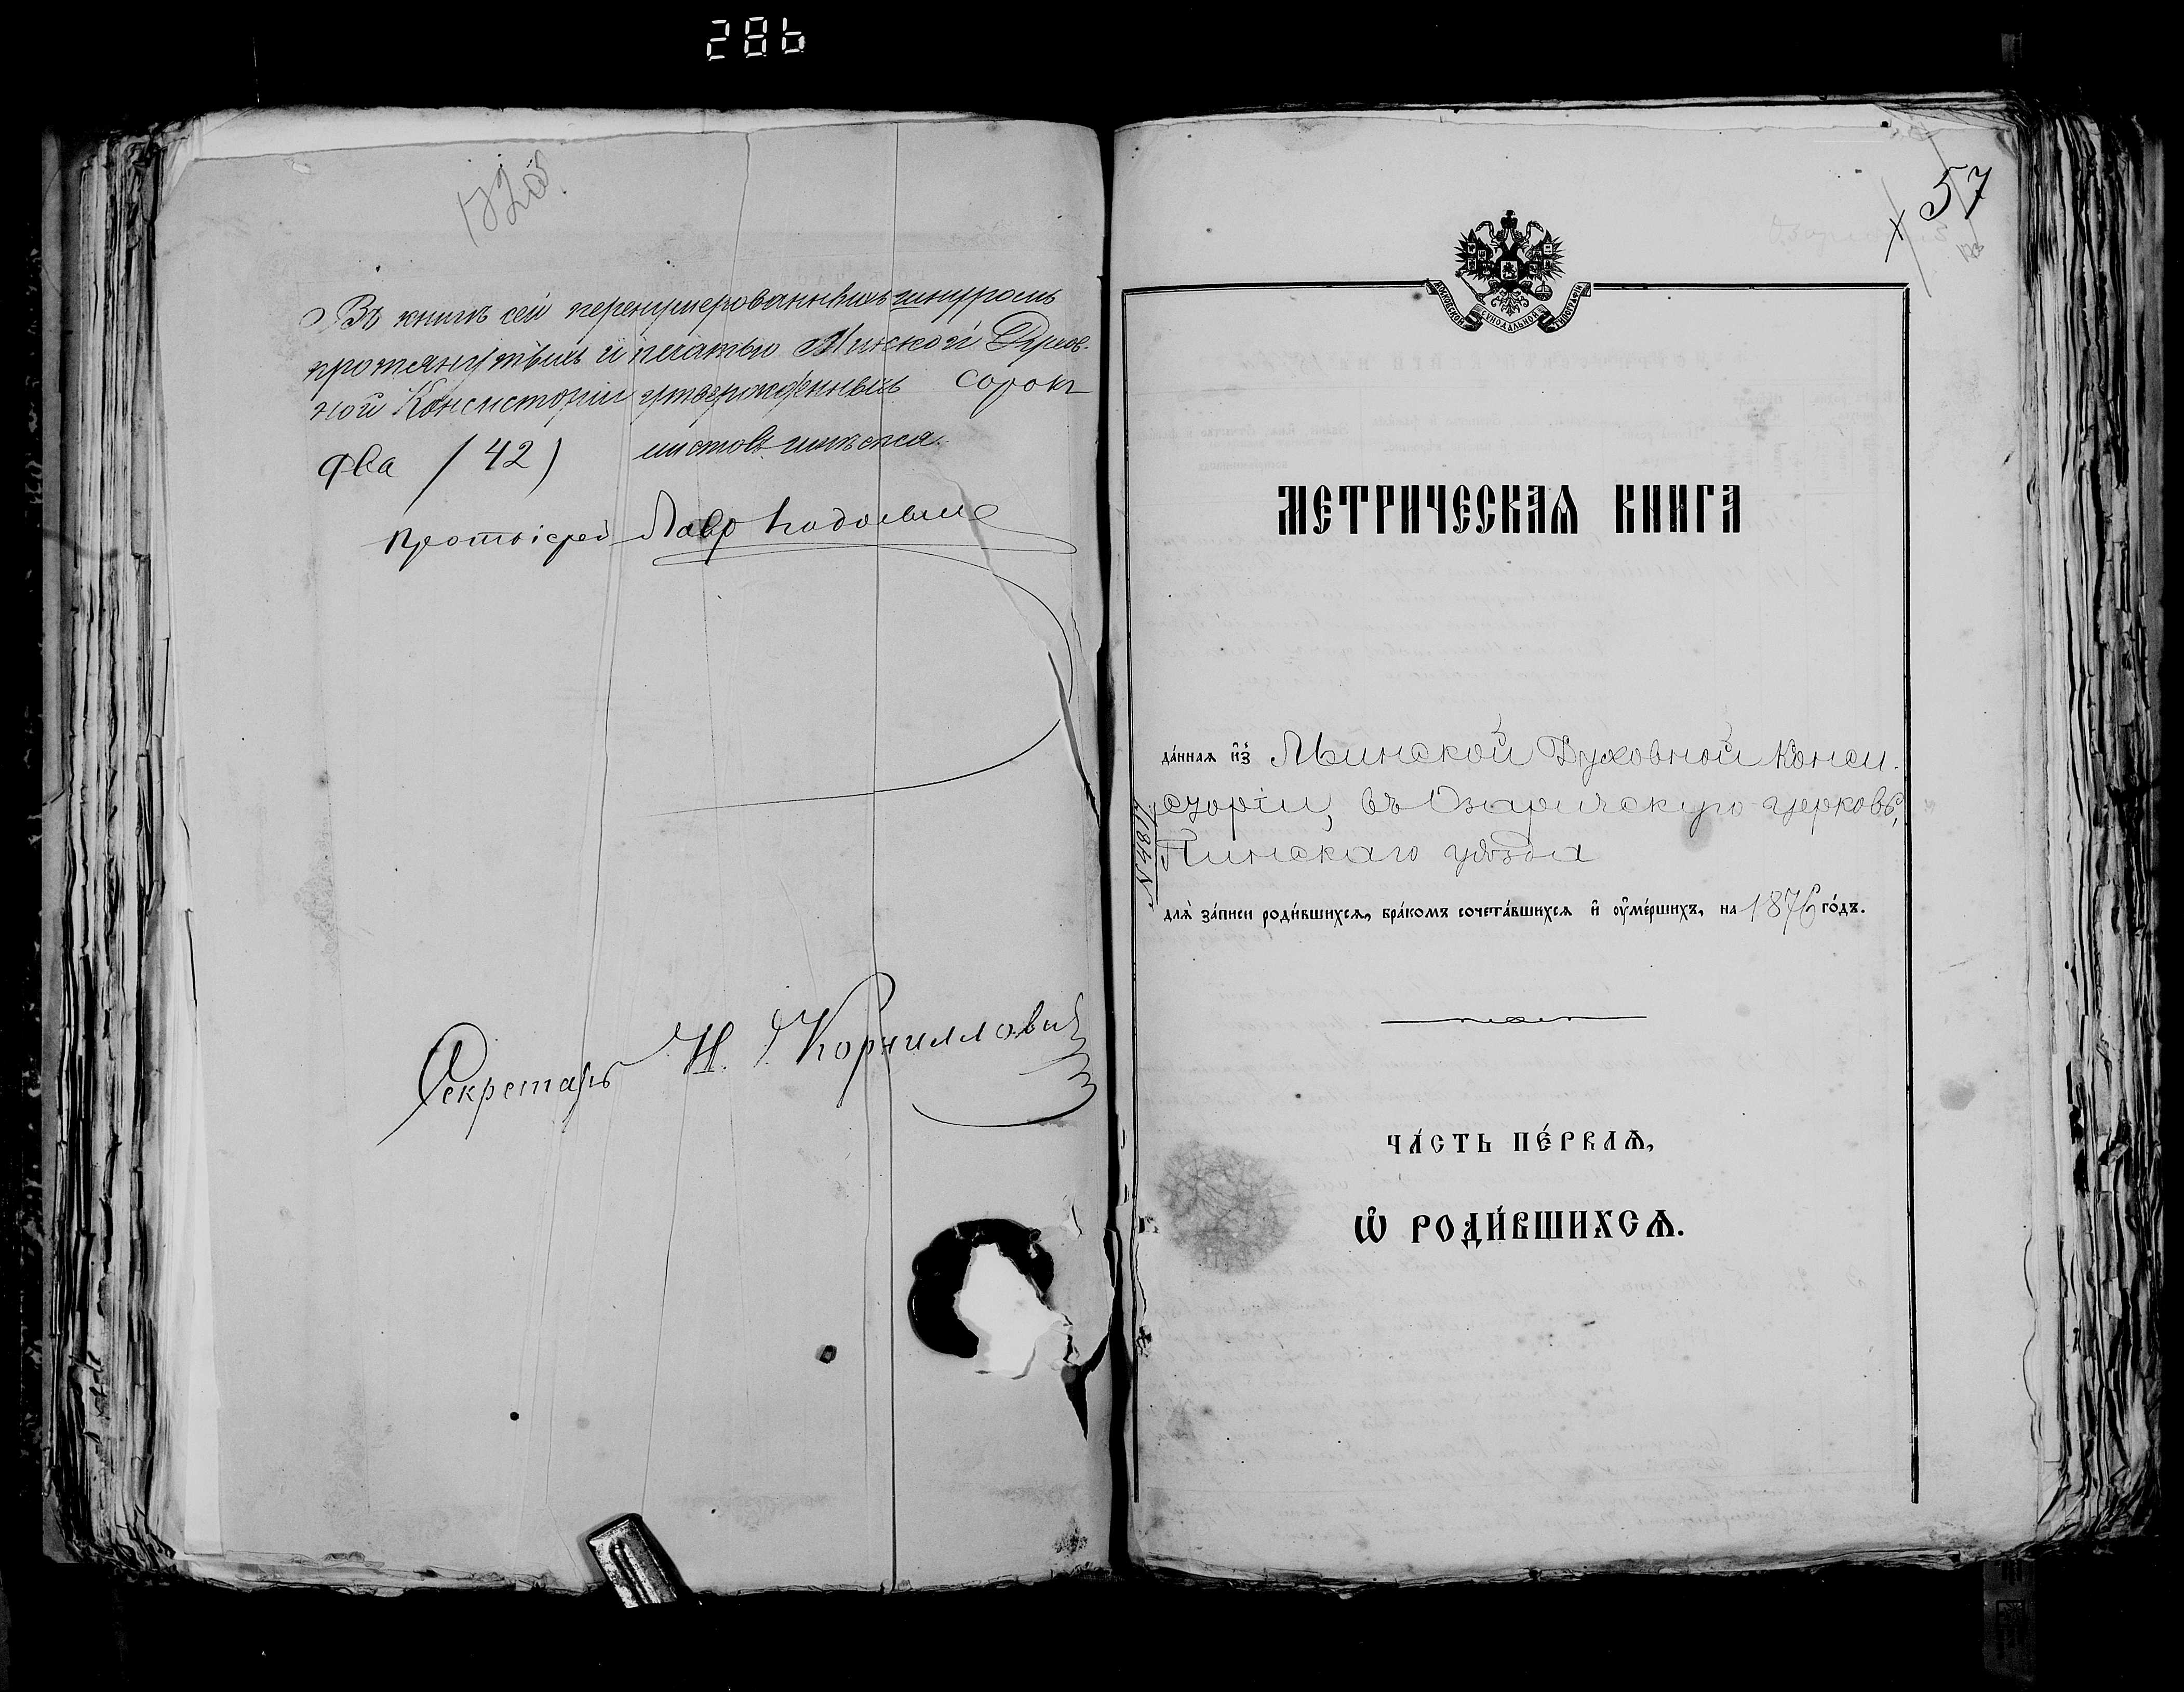 286
Въ книгѣ сей перенумерованныхъ шнуромъ
протянутыхъ и печатью Минской Духов-
ной Консисторіи утвержденныхъ сорокъ
два (42) листовъ имѣется.
Протоіерей Лавръ
Секретарь Н. Корниллович
57
МОСКОВСКОЙ СѴНОДАЛЬНОЙ ТИПОГРАФІИ
МЕТРИЧЕСКАѦ КНИГА
да́ннаѧ и҆з̾ Минской Духовной Конси-
сторіи, въ Озаричскую церковь,
Пинскаго уѣзда
длѧ̀ за́писи роди́вшихсѧ, бра́комъ сочета́вшихсѧ и҆ ᲂу҆ме́ршихъ, на 1876 го́дъ.
ЧА́СТЬ ПЕ́РВАѦ,
Ѡ҆ РОДИ́ВШИХСѦ.